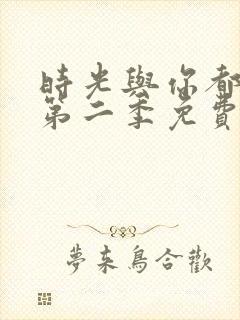 時光與你都
第二季免費
夢来鳥合歡